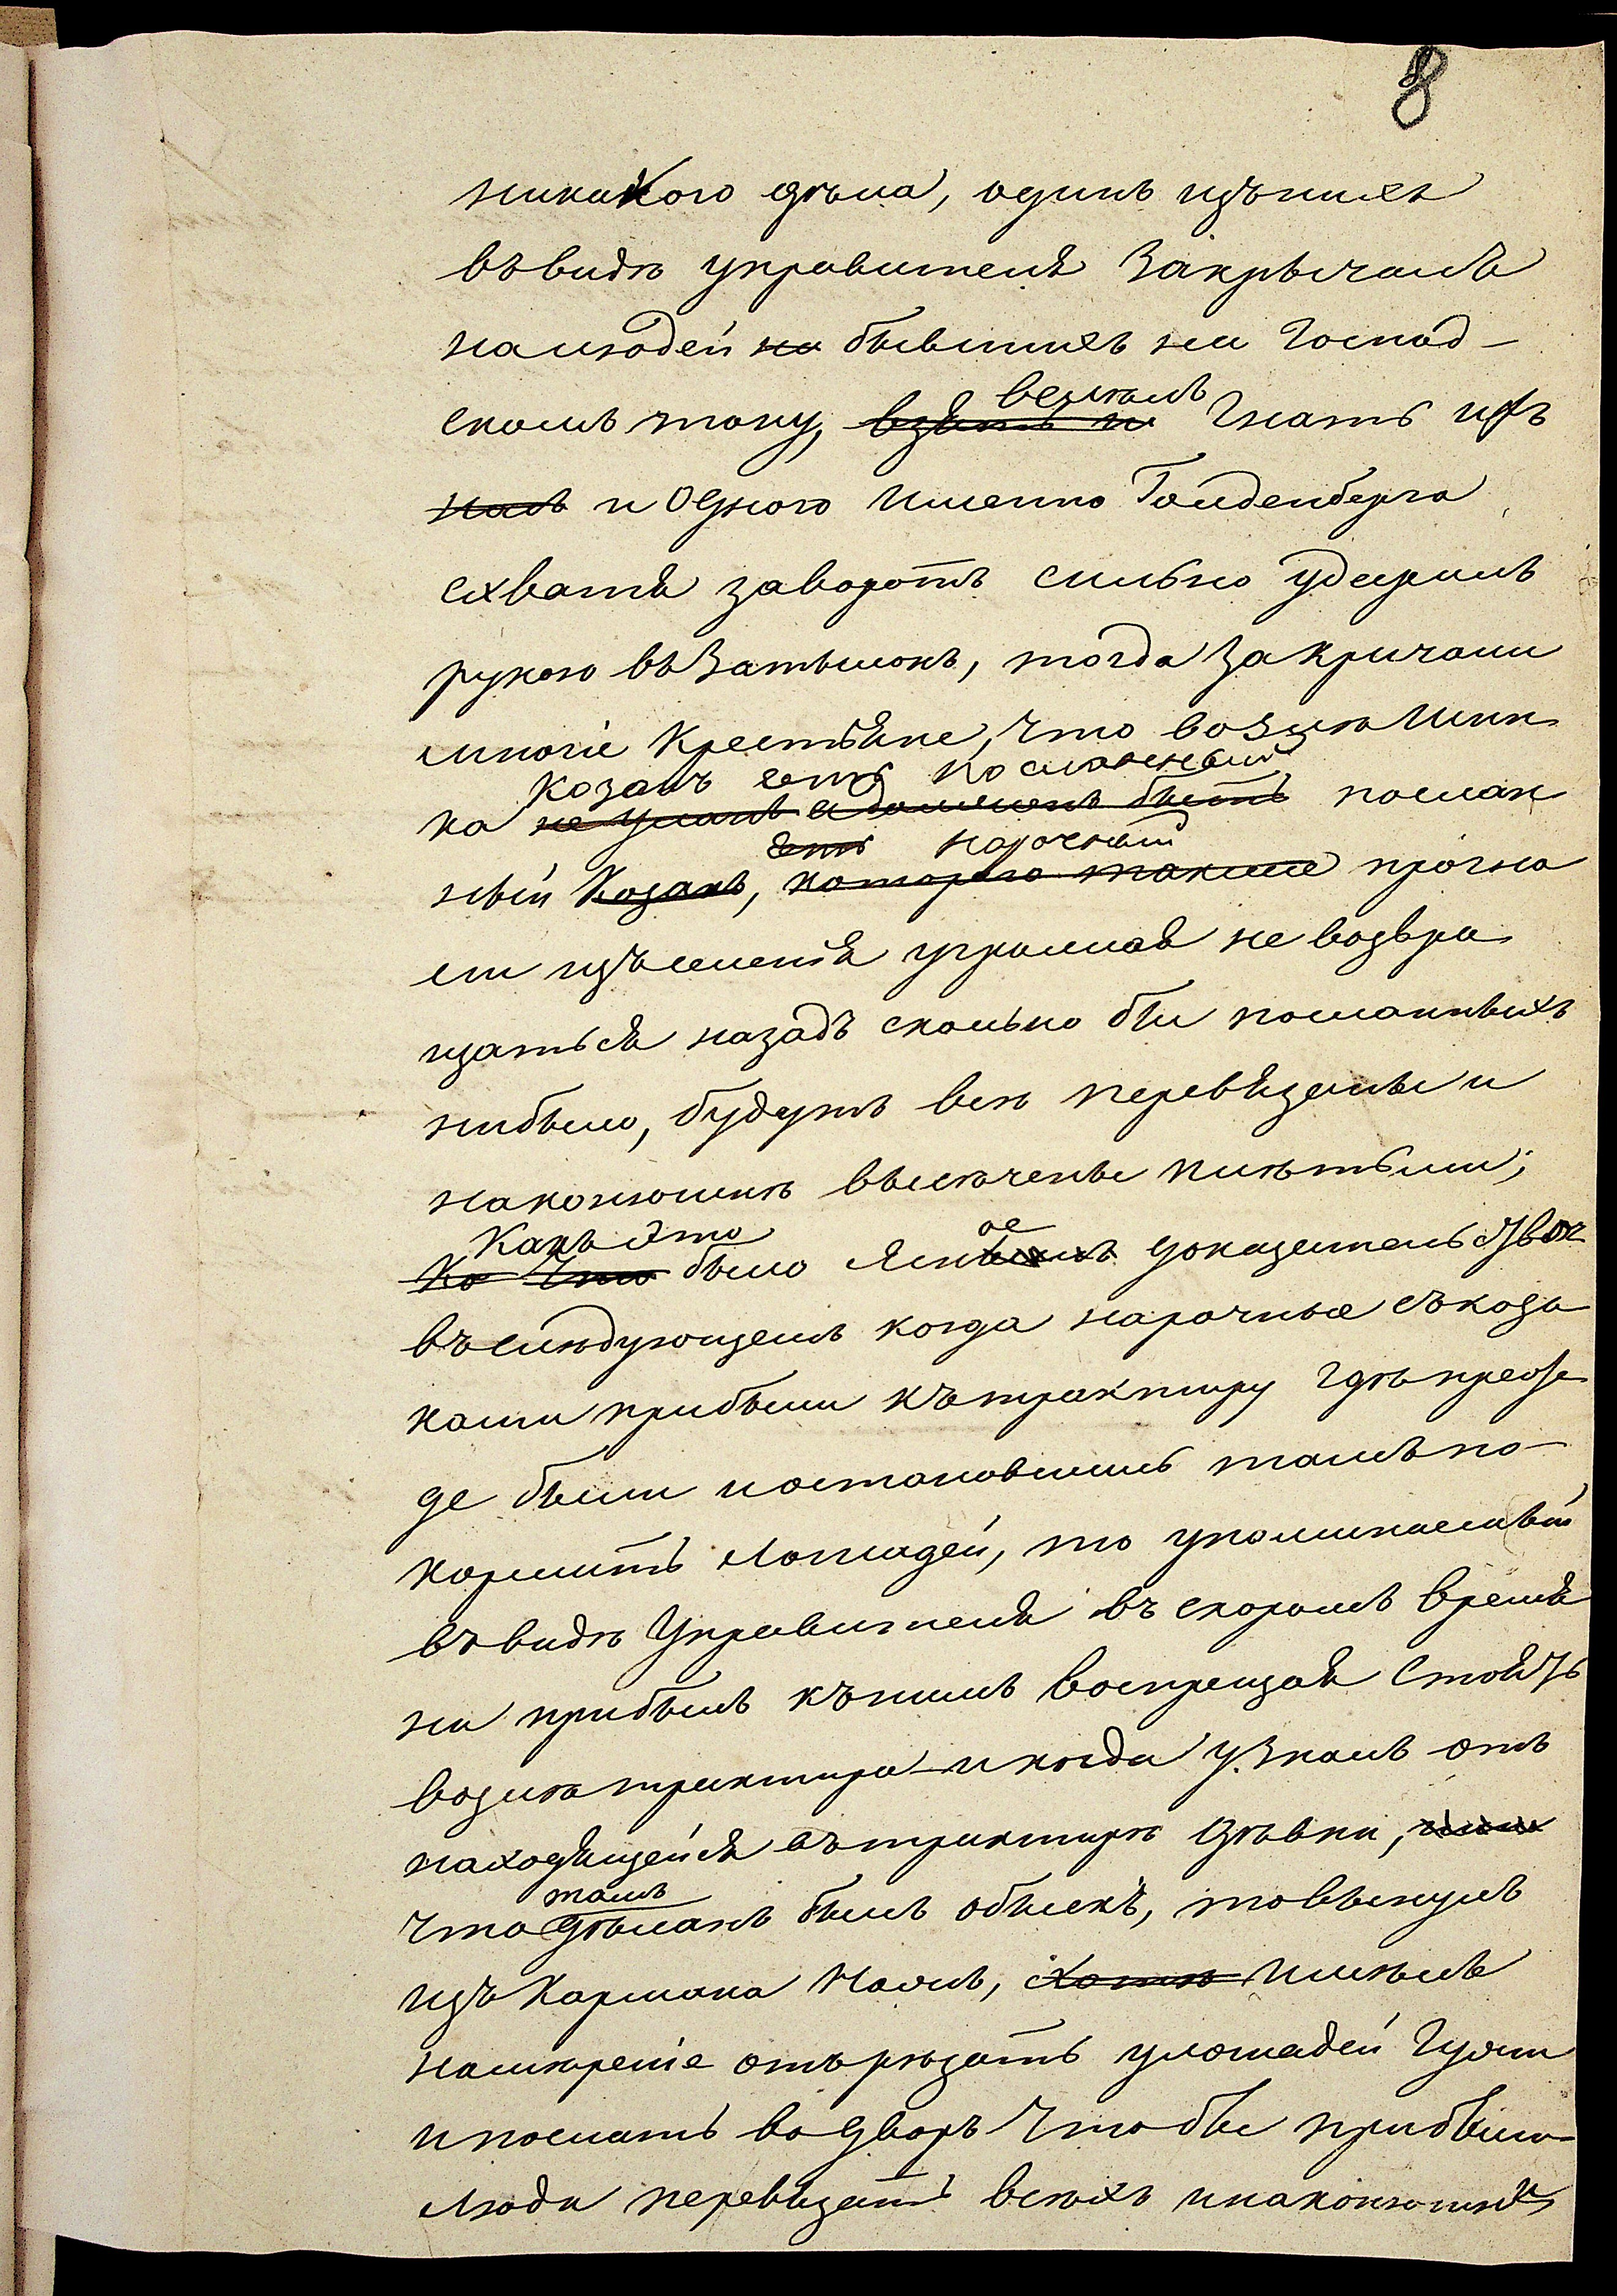 8
никакого дѣла, одинъ изъ нихъ
въ видѣ управителя закрычалъ
на людей на бывшихъ на Господ-
велѣлъ
скомъ току, взять и гнать ихъ
и одного именно Голденберга
схватя заворотъ сильно ударилъ
рукою въ затылокъ, тогда закричали
многіе крестьяне, что возлѣ Шин
Козакъ есть посланный
ка не уланъ а долженъ быть послан
есть нарочный
ный Козакъ, которого также прогна
ли изъ селенія угрожая не возвра
щаться назадъ сколько бы посланныхъ
нибыло, будутъ всѣ перевязаны и
наконюшнѣ высѣчены плѣтьми;
Какъ это ое
Ко Что было Ясн доказательство
въ слѣдующемъ когда нарочные съ коза
ками прибыли къ трактиру гдѣ преж
де были и остановились тамъ по-
кормить Лошадей, то упоминаемый
въ видѣ Управителя въ скоромъ время
ни прибылъ къ нимъ воспрещая стоять
возлѣ трактира и когда узналъ отъ
находящейся въ трактирѣ дѣвки,
тамъ
что дѣлакъ былъ обыскъ, то вынулъ
изъ Кармана Ножъ, хотѣ имѣлъ
намѣреніе отъ рѣзать улошадей Гужи
и послать во дворъ чтобы прибыли
Люди перевязать всѣхъ и наконюшнѣ